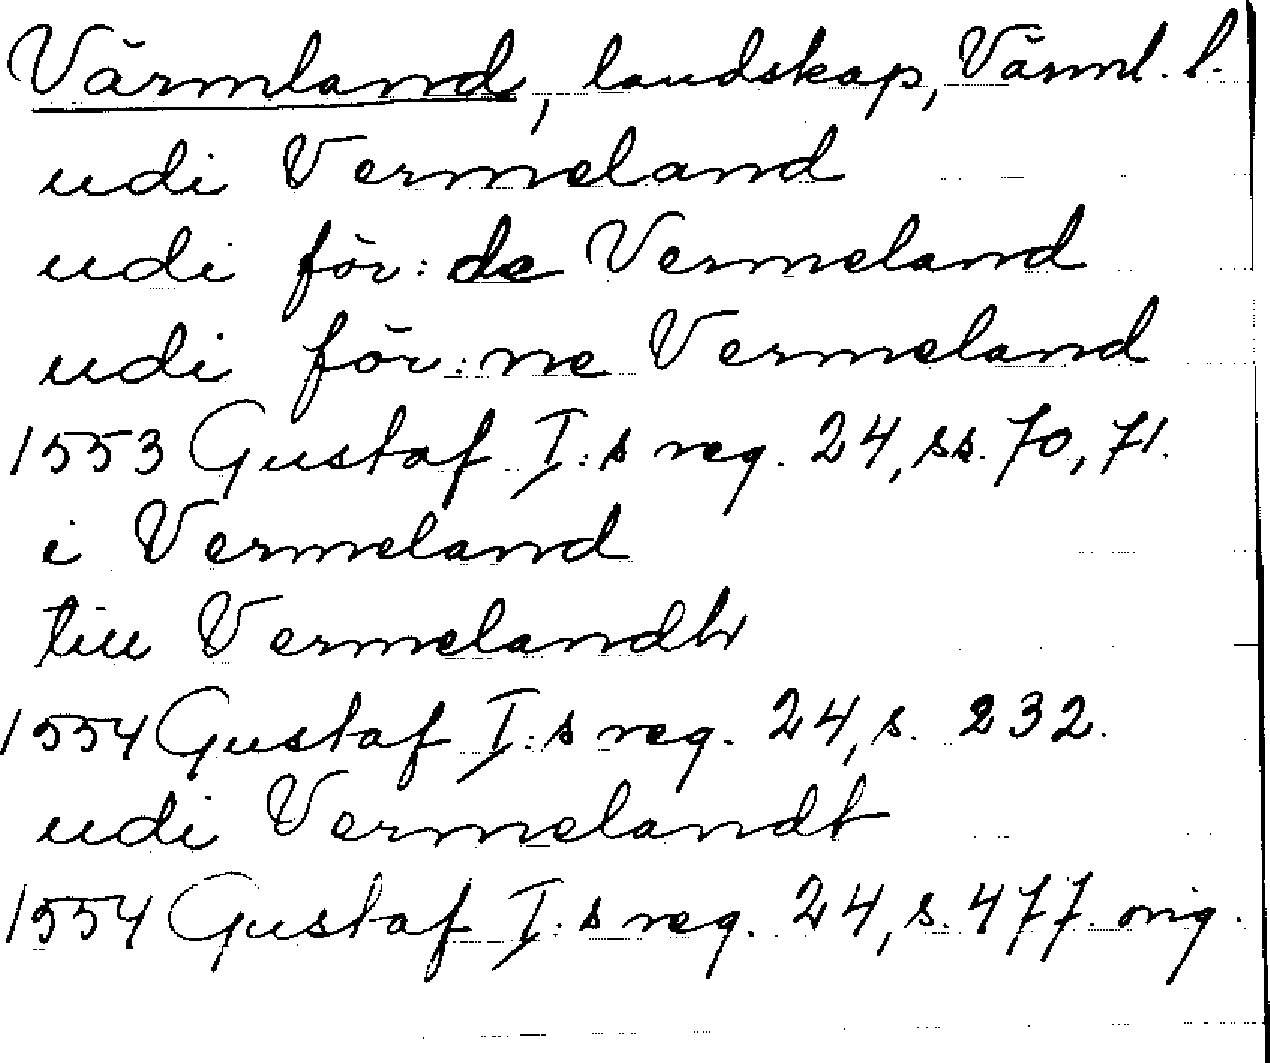 Värmland, landskap, Värml. l.
udi Vermeland
udi för:de Vermeland
udi för:ne Vermeland
1553 Gustaf I:s reg. 24, ss. 70, 71.
i Vermeland
till Vermelandh
1554 Gustaf I:s reg. 24, s. 232.
udi Vermelandt
1554 Gustaf I:s reg. 24, s. 477. orig.